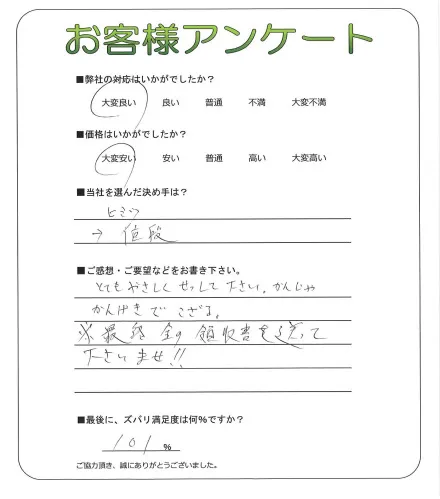 お客様アンケート
■弊社の対応はいかがでしたか？
大変良い 良い 普通 不満 大変不満
■価格はいかがでしたか？
大変安い 安い 普通 高い 大変高い
■当社を選んだ決め手は？
ヒミツ
→ 値段
■ご感想・ご要望などをお書き下さい。
とてもやさしくせっして下さい。かんじゃ
かんげきでござる。
※最終金の領収書を送って
下さいませ!!
■最後に、ズバリ満足度は何%ですか？
101 %
ご協力頂き、誠にありがとうございました。